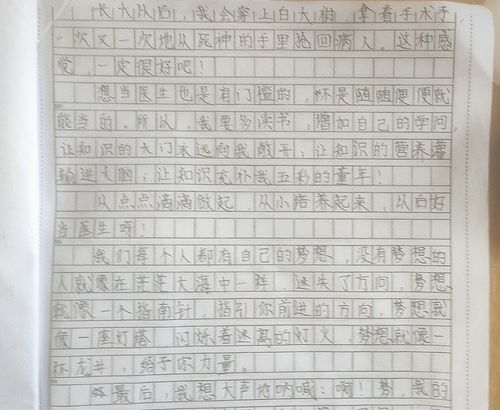 长大以后，我会穿上白大褂，拿着手术
一次又一次地从死神的手里抢回病人。这种感
觉，一定很好吧！
想当医生也是有门槛的，不是随随便便就
能当的。所以，我要多读书，增加自己的学问
让知识的大门永远向我敞开；让知识的营养灌
输进大脑；让知识充补我五彩的童年！
从点点滴滴做起，从小培养起来，从白好
当医生呀！
我们每个人都有自己的梦想，没有梦想的
人就像在茫茫大海中一样，迷失了方向，梦想
就像一个指南针，指引你前进的方向，梦想就
像一座灯塔，闪烁着的灯火，梦想就像一
杯龙井，给予你力量。
最后，我想大声地呐喊：啊！梦，我的